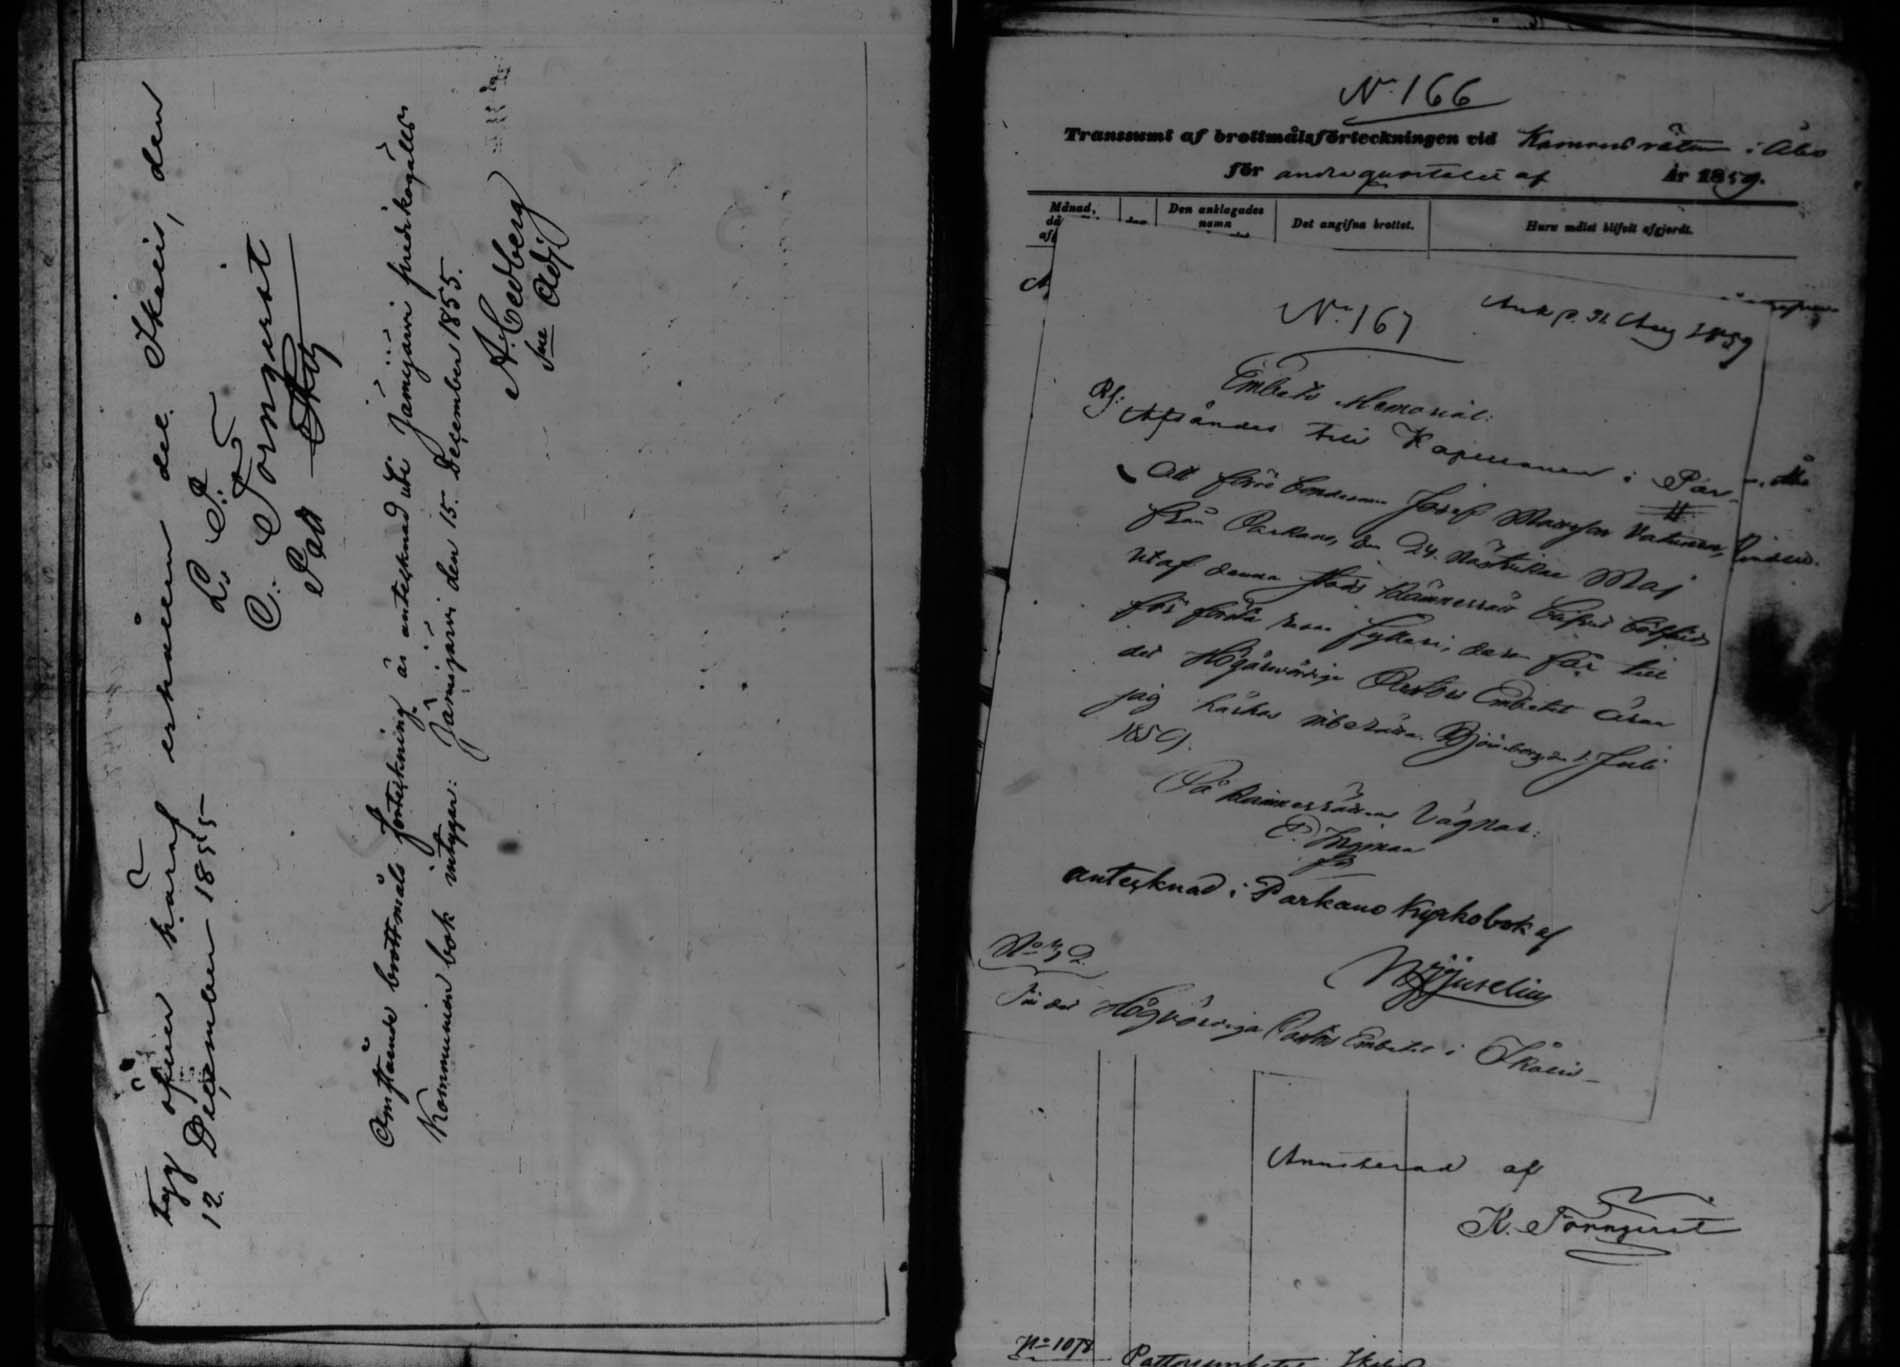 tygg öfver häraf erkännes del. Ikalis, den
12. December 1855
L. S.
C. Tornqvist
Past Adj
Omstående brottmåls förteckning är antecknad uti Jämijärvi predikogälls
Kommunion bok intygar: Jämijärvi den 15. December 1855.
A. Cedberg
Sne Adj
No 166
Transsumt af brottmålsförteckningen vid Kämnersrätten i Åbo
för andra quartalet af År 1859.
Månad, Den anklagades namn Det angifna brottet. Huru målet blifvit afgjordt.
No 167
Ank. d. 31 Aug 1859
Embets Memorial:
Afsändes till Kapellanen i Par-
Att förre bonden Josef Mattsson Vatunen,
från Parkano, den 24. sistvikne Maj
utaf denna stads Kämnersrätt blifvit bötfäld
för första resan fylleri, derom får till
det Högärevördige Pastors Embetet äran
jag härhos meddela. Björneborg den 1. Juli
1859.
På Kämnersrättens Vägnar:
antecknad i Parkano Kyrkobok af
Juselius
Till det Högvördiga Pastors Embetet i Ikalis
Annoterad af
K. Tornqvist
No 1078
Pastorsembetet Ikalis